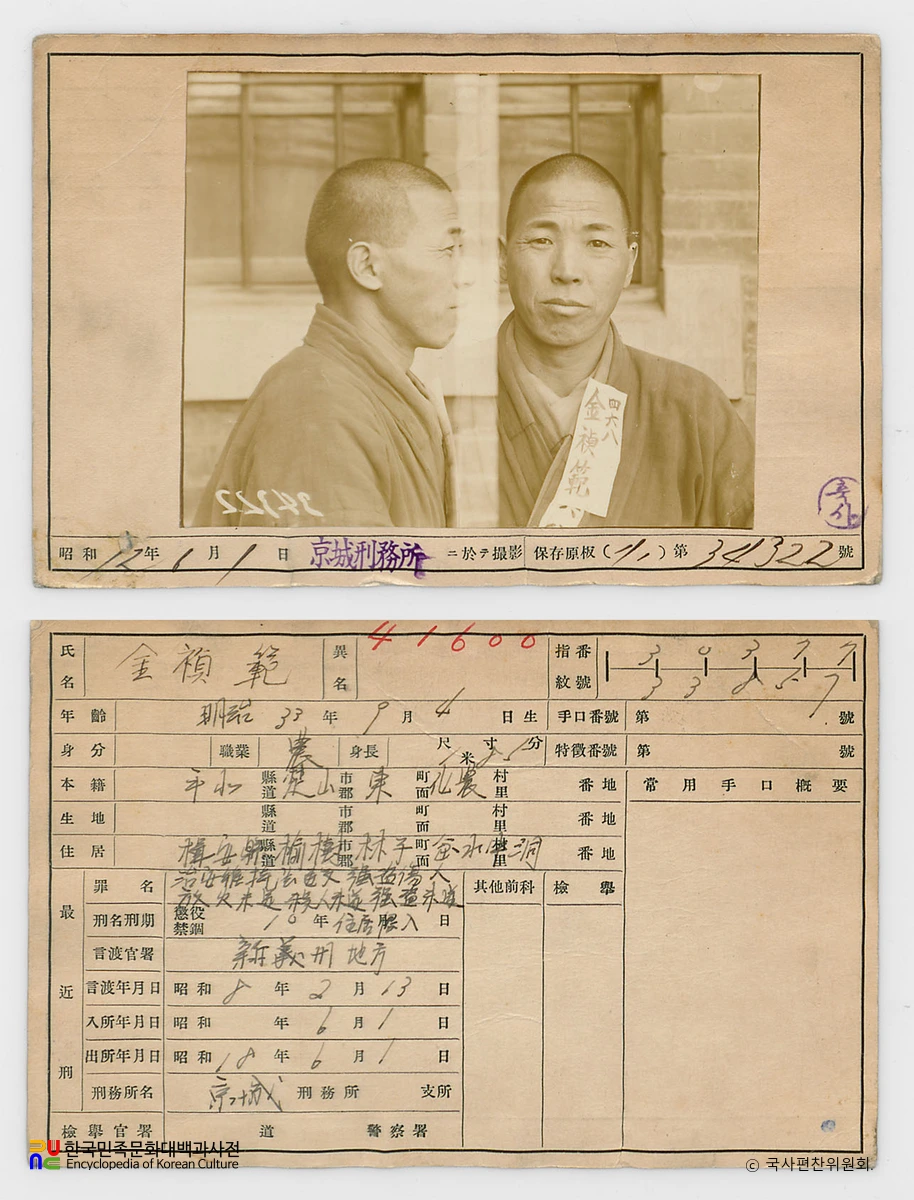 四六八
金禎範
34322
昭和 12年 6月 1日 京城刑務所 ニ於テ撮影 保存原板 ( ) 第 34322 號
氏名 金禎範 異名 41600 指紋番號 3 0 3 7 7
3 3 8 5 7
年齡 明治 33年 9月 4日生 手口番號 第 號
身分 職業 農 身長 尺寸分 米 特徵番號 第 號
本籍 平北 縣道 楚山 市郡 東 町面 村里 番地 常用手口概要
生地 縣道 市郡 町面 村里 番地
住居 輯安縣 縣道 市郡 林子 町面 村里 番地
最近刑
罪名 治安維持法違反 強盜傷人 其他前科 檢擧
放火未遂 殺人未遂 強盜未遂
刑名刑期 懲役 禁錮 10年 月 日 住居侵入
言渡官署 新義州地方
言渡年月日 昭和 8年 2月 13日
入所年月日 昭和 年 6月 1日
出所年月日 昭和 18年 6月 1日
刑務所名 京城 刑務所 支所
檢擧官署 道 警察署
한국민족문화대백과사전
Encyclopedia of Korean Culture
© 국사편찬위원회.